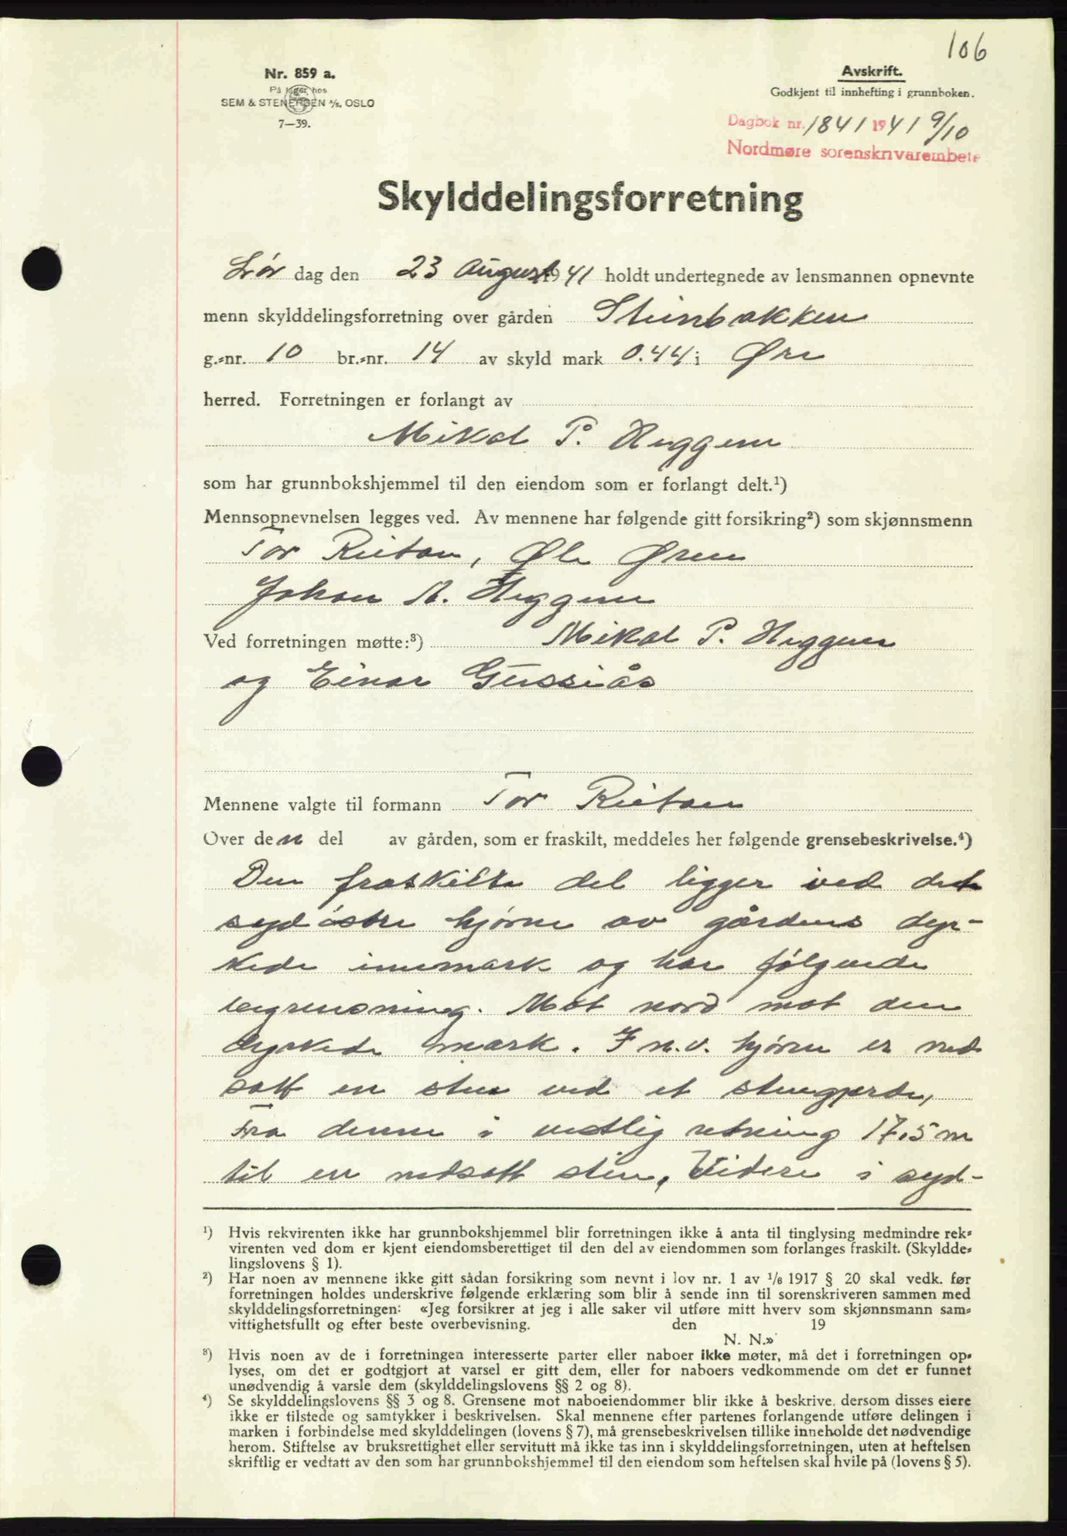 106
Nr. 859 a.
På lager hos
SEM & STENERSEN A/S. OSLO
7—39.
Avskrift.
Godkjent til innhefting i grunnboken.
Dagbok nr. 1841 1941 9/10
Nordmøre sorenskrivarembete
Skylddelingsforretning
Lør dag den 23 August 1941 holdt undertegnede av lensmannen opnevnte
menn skylddelingsforretning over gården Steinbakken
g.-nr. 10 br.-nr. 14 av skyld mark 0.44 i Øre
herred. Forretningen er forlangt av
Mikal P. Heggem
som har grunnbokshjemmel til den eiendom som er forlangt delt.¹)
Mennsopnevnelsen legges ved. Av mennene har følgende gitt forsikring²) som skjønnsmenn
Tor Reitan, Ole Øren
Johan A. Heggem
Ved forretningen møtte:³) Mikal P. Heggem
og Einar Gussiås
Mennene valgte til formann Tor Reitan
Over den del av gården, som er fraskilt, meddeles her følgende grensebeskrivelse.⁴)
Den fraskilte del ligger ved det
sydöstre hjörne av gårdens dyr-
kede innmark og har følgende
begrensning. Mot nord mot den
dyrkede mark. I n.v. hjørne er ned
satt en sten ved et stengjerde,
Fra denne i vestlig retning 17,5 m
til en nedsatt sten, Videre i syd-
¹) Hvis rekvirenten ikke har grunnbokshjemmel blir forretningen ikke å anta til tinglysing medmindre rek-
virenten ved dom er kjent eiendomsberettiget til den del av eiendommen som forlanges fraskilt. (Skyldde-
lingslovens § 1).
²) Har noen av mennene ikke gitt sådan forsikring som nevnt i lov nr. 1 av ¹/₆ 1917 § 20 skal vedk. før
forretningen holdes underskrive følgende erklæring som blir å sende inn til sorenskriveren sammen med
skylddelingsforretningen: «Jeg forsikrer at jeg i alle saker vil utføre mitt hverv som skjønnsmann sam-
vittighetsfullt og efter beste overbevisning. den 19
N. N.»
³) Hvis noen av de i forretningen interesserte parter eller naboer ikke møter, må det i forretningen op-
lyses, om det er godtgjort at varsel er gitt dem, eller for naboers vedkommende om det er funnet
unødvendig å varsle dem (skylddelingslovens §§ 2 og 8).
⁴) Se skylddelingslovens §§ 3 og 8. Grensene mot naboeiendommer blir ikke å beskrive. dersom disses eiere
ikke er tilstede og samtykker i beskrivelsen. Skal mennene efter partenes forlangende utføre delingen i
marken i forbindelse med skylddelingen (lovens § 7), må grensebeskrivelsen tillike inneholde det nødvendige
herom. Stiftelse av bruksrettighet eller servitutt må ikke tas inn i skylddelingsforretningen, uten at heftelsen
skriftlig er vedtatt av den som har grunnbokshjemmel til den eiendom som heftelsen skal hvile på (lovens § 5).